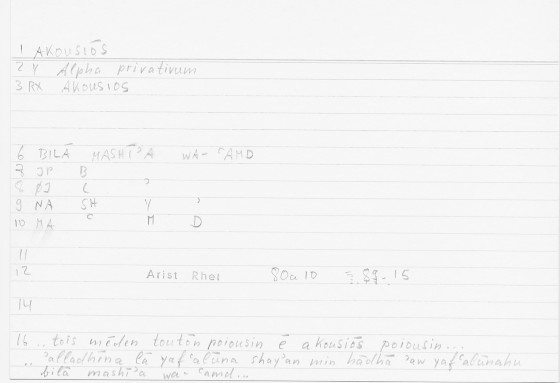 1 AKOUSIŌS
2 Y Alpha privativum
3 RX AKOUSIOS
6 BILĀ MASHĪʾA WA-ʿAMD
7 JP B
8 PJ L ʾ
9 NA SH Y ʾ
10 MA ʿ M D
11
12 Arist Rhet 80a10 89.15
14
16 .. tois mēden toutōn poiousin ē akousiōs poiousin...
.. ʾalladhīna lā yafʿalūna shayʾan min hādhā ʾaw yafʿalūnahu
bilā mashīʾa wa-ʿamd...